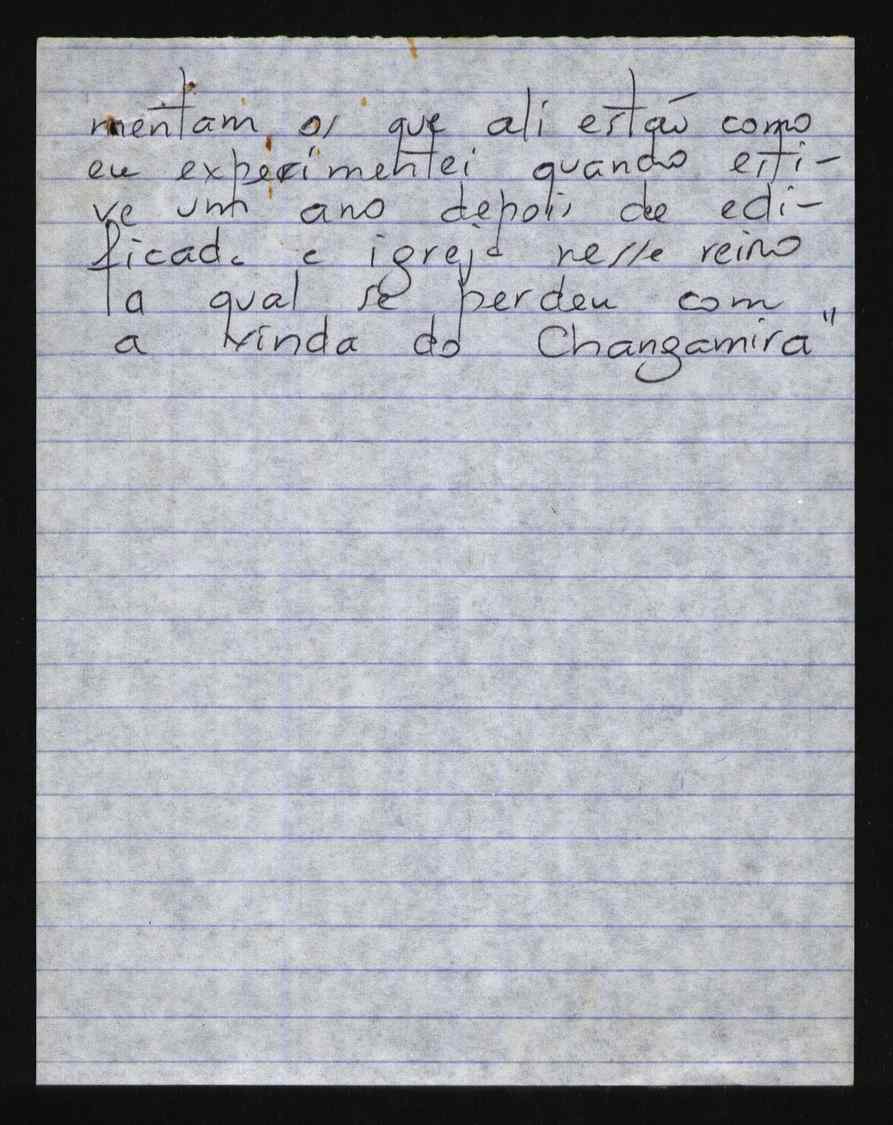 mentam os que ali estão como
eu experimentei quando esti-
ve um ano depois de edi-
ficada a igreja nesse reino
a qual se perdeu com
a vinda do Changamira"